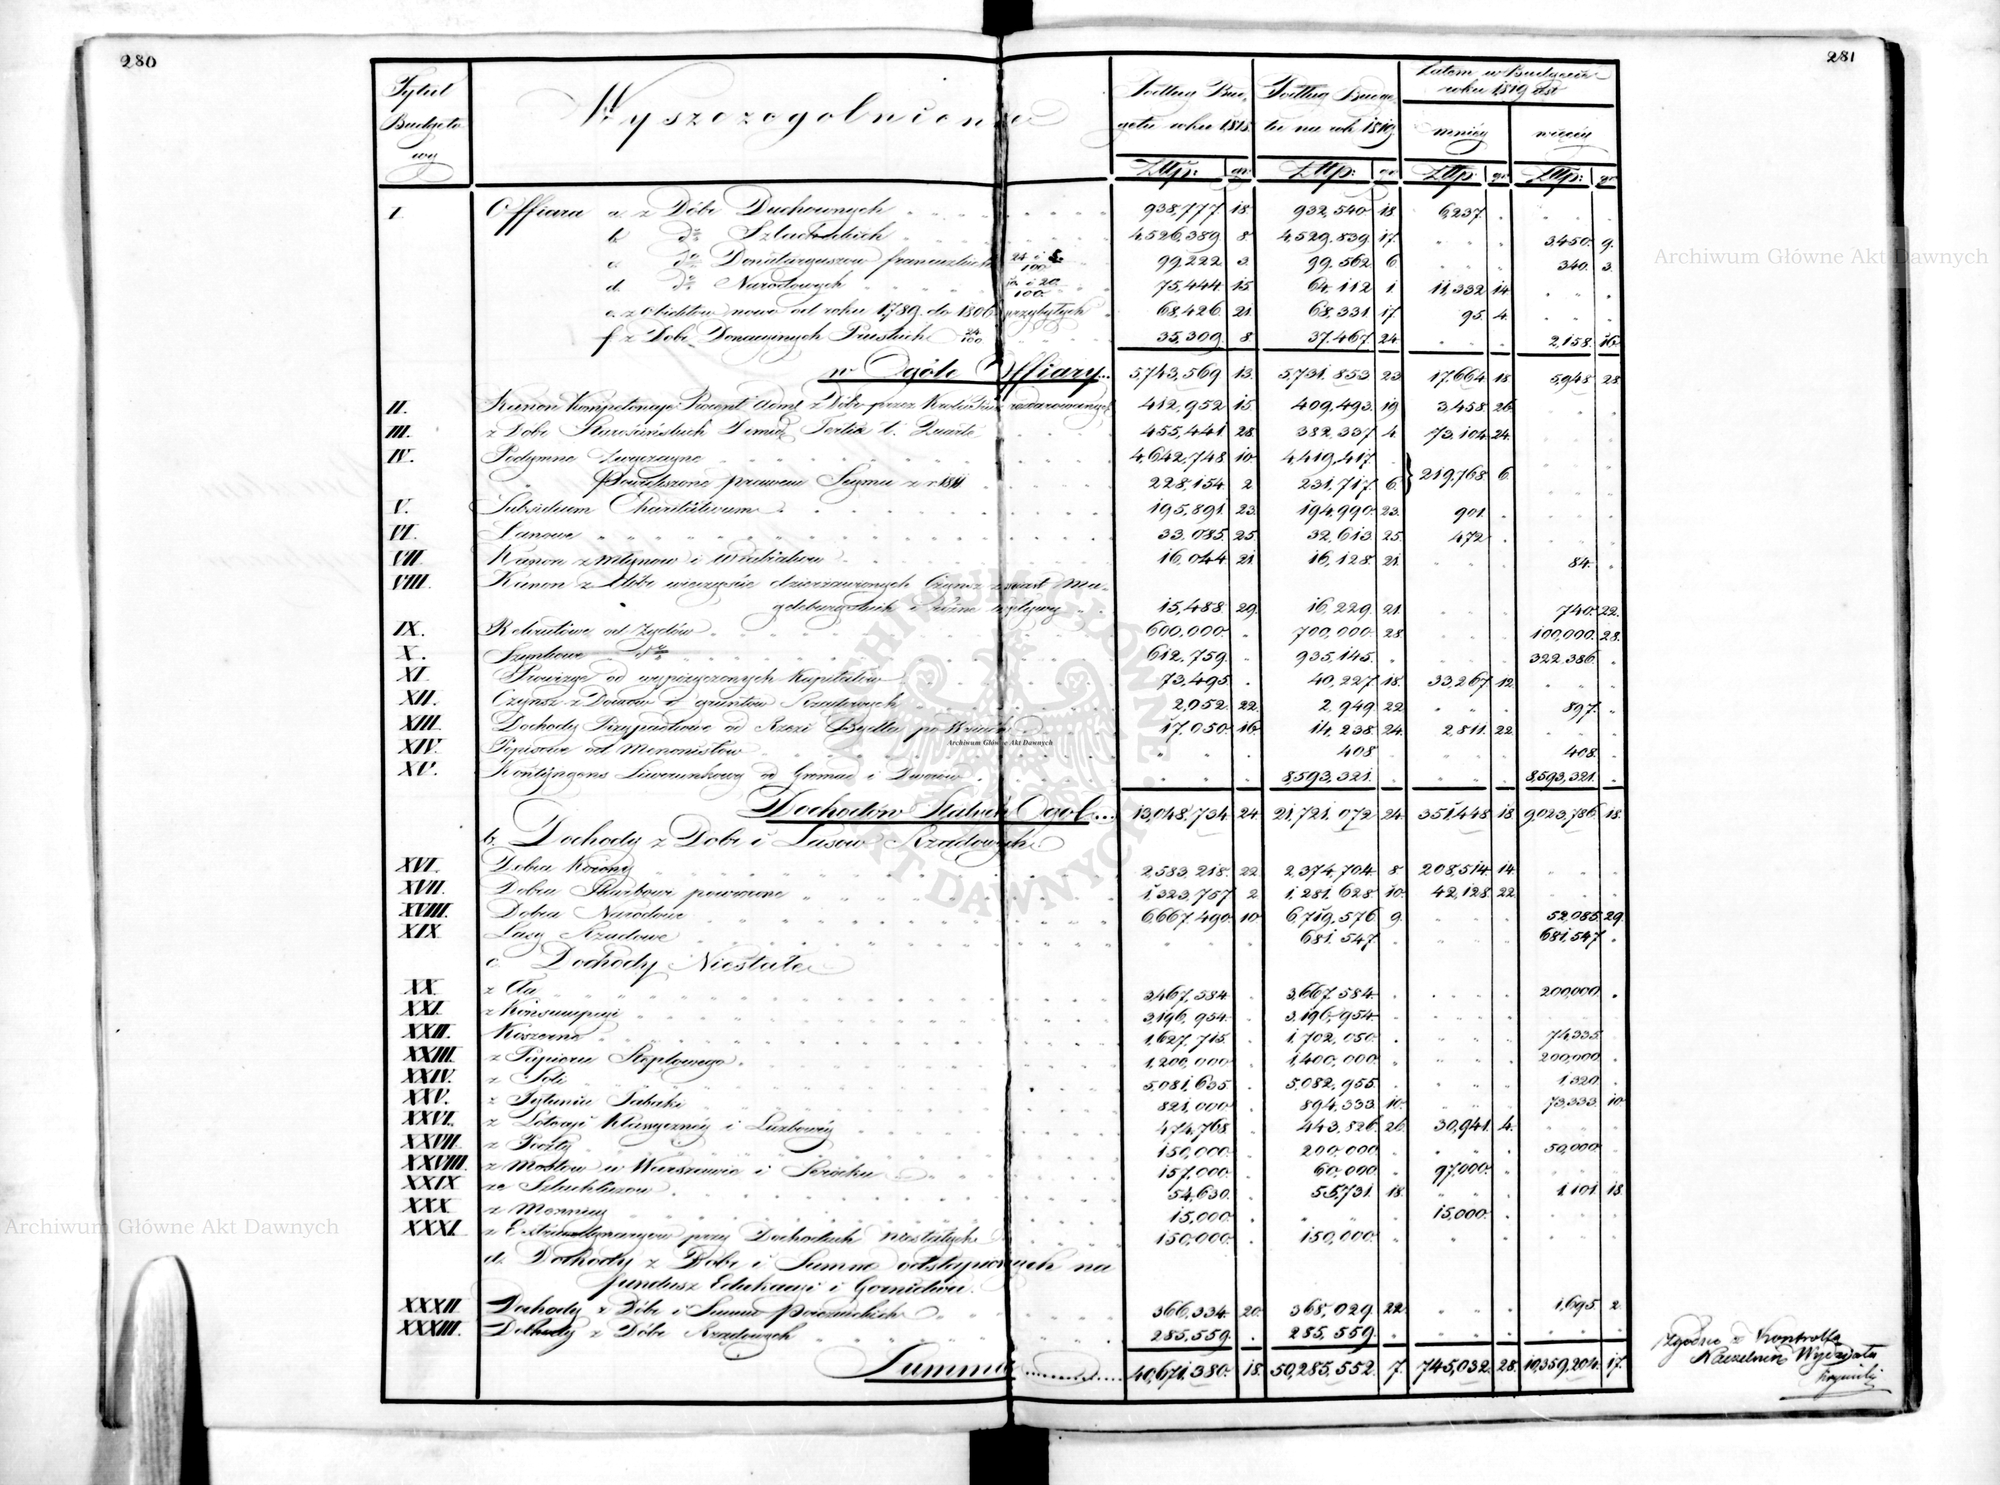 280
281
Tytuł Budgetowy Wyszczegolnienie Podług Budgetu roku 1818. Podług Budgetu na rok 1819 Zatem w Budgecie roku 1819 jest
mniéy więcéy
Złtp: gr. Złtp: gr. Złtp: gr. Złtp: gr.
I. Offiara a. z Dóbr Duchownych 938,777. 18. 932,540 18 6,237.
b. do Szlacheckich 4,526,389 8. 4,529,839. 17. 3,450. 9.
c. do Donataryuszow francuzkich 24 i 100 99,222 3. 99,562 6 340. 3.
d. do Narodowych 10 i 20 100. 75,444 15 64,112 1 11,332 14
e. z Obiektow nowo od roku 1789. do 1806. przybyłych 68,426. 21. 68,331 17 95. 4.
f z Dobr Donacyinych Pruskich 24 100 35,309. 8 37,467. 24 2,158. 16
w Ogóle Offiary... 5,743,569 13. 5,731,853 23 17,664 18 5,948 28
II. Kanon kompetencyi z Dóbr przez Krola rozdarowanych 412,952 15 409,493. 19 3,458. 26
III. z Dobr Starościńskich 455,441 28. 382,337 4. 73,104 24.
IV. Podymne zwyczayne 4,642,748 10. 4,419,417.
Powiększone prawem Seymu z r. 1811 228,154 2 231,717. 6. } 219,768. 6.
V. Subsidium Charitativum 195,891. 23. 194,990. 23. 901.
VI. Łanowe 33,085. 25. 32,613 25. 472
VII. Kanon z młynow i Wiatrakow 16,044 21. 16,128. 21. 84.
VIII. Kanon z Dóbr wieczyście dzierzawionych Czynsz z miast Ma-
gdeburgskich i różne wpływy 15,488. 29. 16,229 21 740. 22.
IX. Rekrutowe od Żydów 600,000. 700,000 28. 100,000. 28.
X. Szynkowe do 612,759. 935,145. 322,386.
XI. Prowizye od wypożyczonych kapitałów 73,495. 40,227. 18. 33,267 12.
XII. Czynsz z Domów i gruntów Rządowych 2,052. 22. 2,949 22 897.
XIII. Dochody Przypadkowe od Rzezi Bydła po Wsiach 17,050. 16. 14,238. 24. 2,811. 22.
XIV. Popisowe od Menonistow 408 408.
XV. Kontyngens Liwerunkowy od Gromad i Dworów 8,593,321. 8,593,321.
Dochodów Stałych Ogol... 13,048,734 24. 21,721,072 24. 351,448 18 9,023,786. 18.
b. Dochody z Dóbr i Lasow Rządowych
XVI. Dobra Korony 2,583,218. 22. 2,374,704 8 208,514 14.
XVII. Dobra Skarbowi powrócone 1,323,757 2 1,281,628. 10. 42,128. 22.
XVIII. Dobra Narodowe 6,667,490. 10. 6,719,576 9. 52,085 29.
XIX. Lasy Rządowe 681,547. 681,547.
c. Dochody Niestałe
XX. z Cła 3,467,584. 3,667,584 200,000.
XXI. z Konsumpcyi 3,196,954. 3,196,954
XXII. Koszerne 1,627,715. 1,702,050. 74,335.
XXIII. z Papieru Stęplowego. 1,200,000. 1,400,000. 200,000.
XXIV. z Soli 5,081,635. 5,082,955 1,320.
XXV. z Tytuniu Tabaki 821,000. 894,333 10. 73,333. 10
XXVI. z Loteryi Klassycznéy i Liczbowéy 474,768 443,826. 26. 30,941. 4.
XXVII. z Poczty 150,000. 200,000. 50,000.
XXVIII. z Mostow w Warszawie i Serocku 157,000. 60,000. 97,000.
XXIX. ze Szlachtuzow 54,630. 55,731. 18. 1,101. 18.
XXX. z Mennicy 15,000. 15,000.
XXXI. z Extraordynaryow przy Dochodach niestałych 150,000. 150,000.
d. Dochody z Dobr i Summ odstąpionych na
fundusz Edukacyi i Gornictwa.
XXXII. Dochody z Dóbr i Summ poiezuickich 366,334. 20. 368,029 22. 1,695. 2.
XXXIII. Dochody z Dóbr Rządowych 285,559. 285,559.
Summa 40,671,380. 18. 50,285,552. 7. 745,032. 28. 10,359,204. 17.
Zgodno z Kontrollą
Naczelnik Wydziału
Archiwum Główne Akt Dawnych
Archiwum Główne Akt Dawnych
Archiwum Główne Akt Dawnych
ARCHIWUM GŁÓWNE AKT DAWNYCH